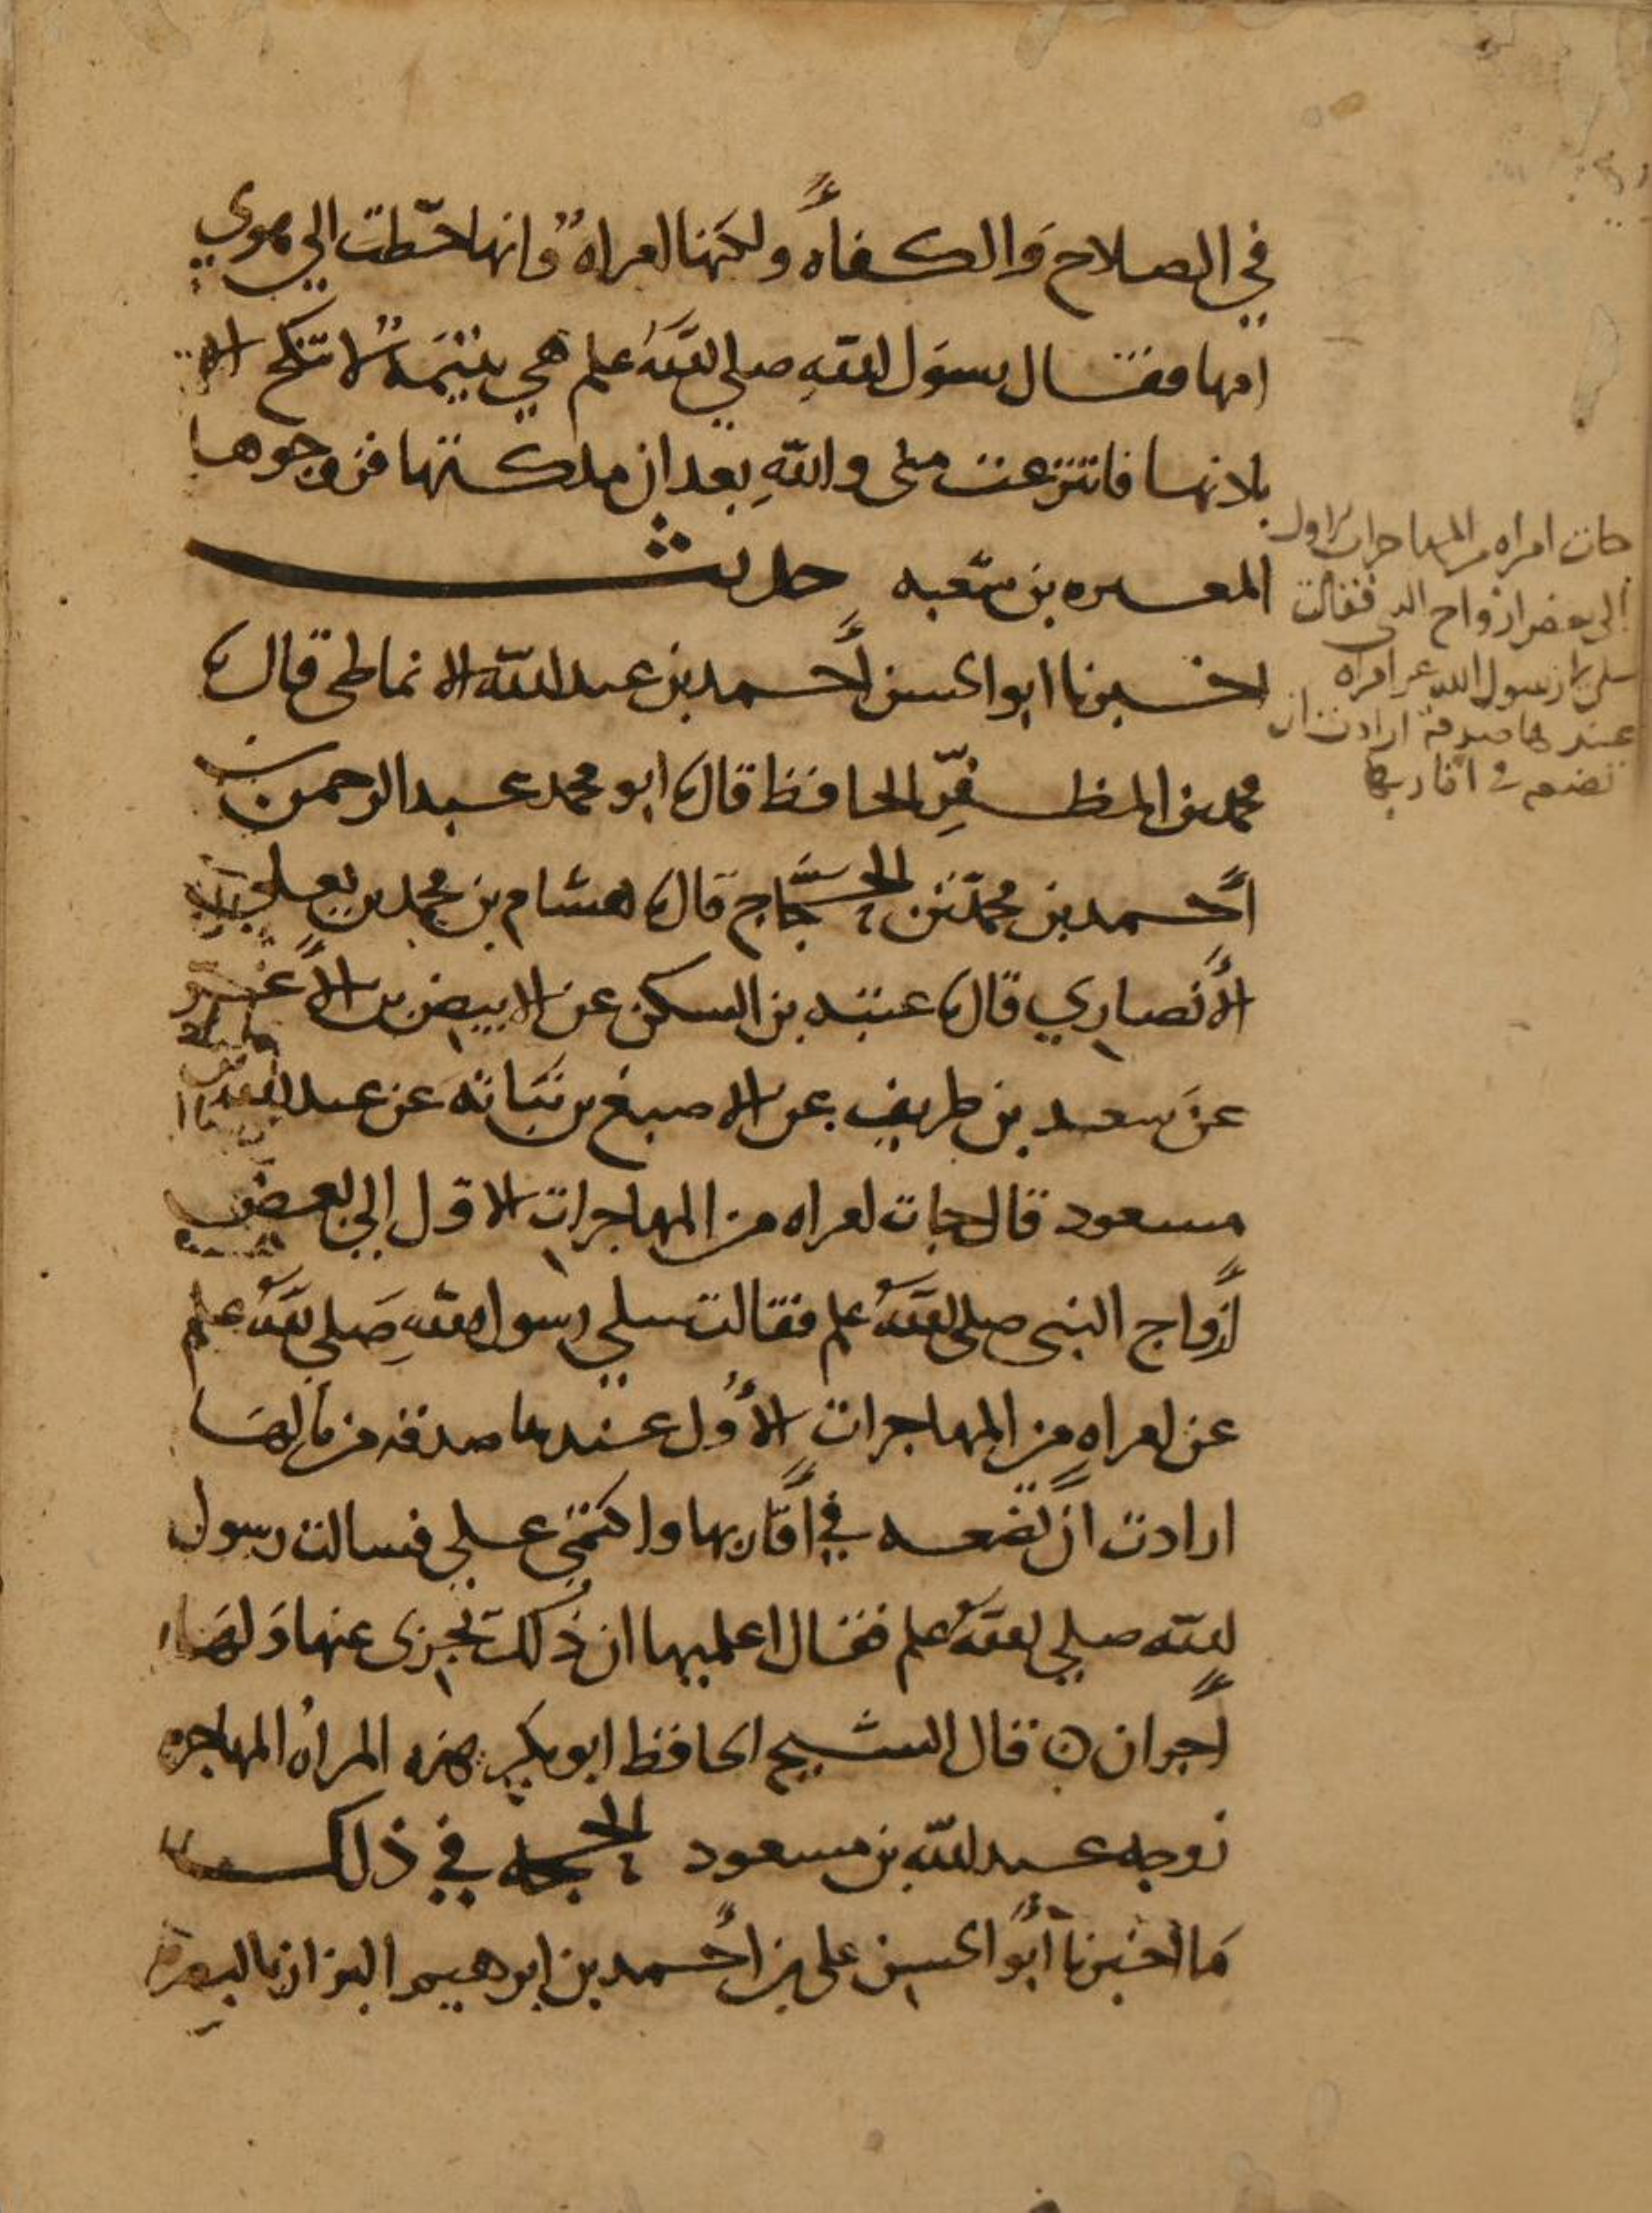 في الصلاح والكفاءة ولكنها امراة وانها حطت الي هوي
امها فقال رسول الله صلي الله علم هي يتيمة لا تنكح الا
باذنها فانتزعت مني والله بعد ان ملكتها فزوجوها
المغيره بن شعبه حديث
اخبرنا ابو الحسن أحمد بن عبد الله الانماطي قال نا
محمد بن المظفر الحافظ قال نا ابو محمد عبد الرحمن بن
أحمد بن محمد بن الحجاج قال نا هشام بن محمد بن يعلي
الأنصاري قال نا عتبه بن السكن عن الابيض بن الأغر
عن سعد بن طريف عن الاصبغ بن نباته عن عبد الله بن
مسعود قال جات امراه من المهاجرات الاول الي بعض
أزواج النبي صلي الله علم فقالت سلي رسول الله صلي الله علم
عن امراه من المهاجرات الأول عندها صدقه من مالها
ارادت ان تضعه في أقاربها واكتمي علي فسالت رسول
الله صلي الله علم فقال اعلميها ان ذلك تجزى عنها ولها
أجران ۞ قال الشيخ الحافظ ابو بكر هذه المرأة المهاجره
زوجه عبد الله بن مسعود الحجه في ذلك
ما اخبرنا أبو الحسن علي بن أحمد بن ابرهيم البزاز بالبصرة
جات امراه من المهاجرات الاول
الي بعض ازواج النبي فقالت
سلي رسول الله عن امراه
عندها صدقة ارادت ان
تضعه في اقاربها